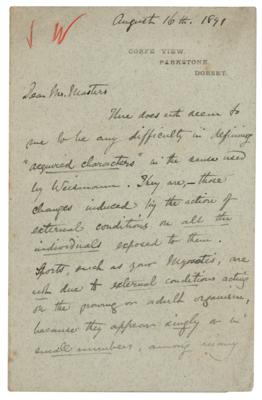 W
August 16th. 1891
CORFE VIEW,
PARKSTONE,
DORSET.
Dear Mr. Masters
There does not seem to
me to be any difficulty in defining
"acquired characters" in the sense used
by Weismann. They are, — those
changes induced by the action of
external conditions on all the
individuals exposed to them.
Sports, such as your Myosotis, are
not due to external conditions acting
on the growing or adult organism,
because they appear singly or in
small numbers, among many